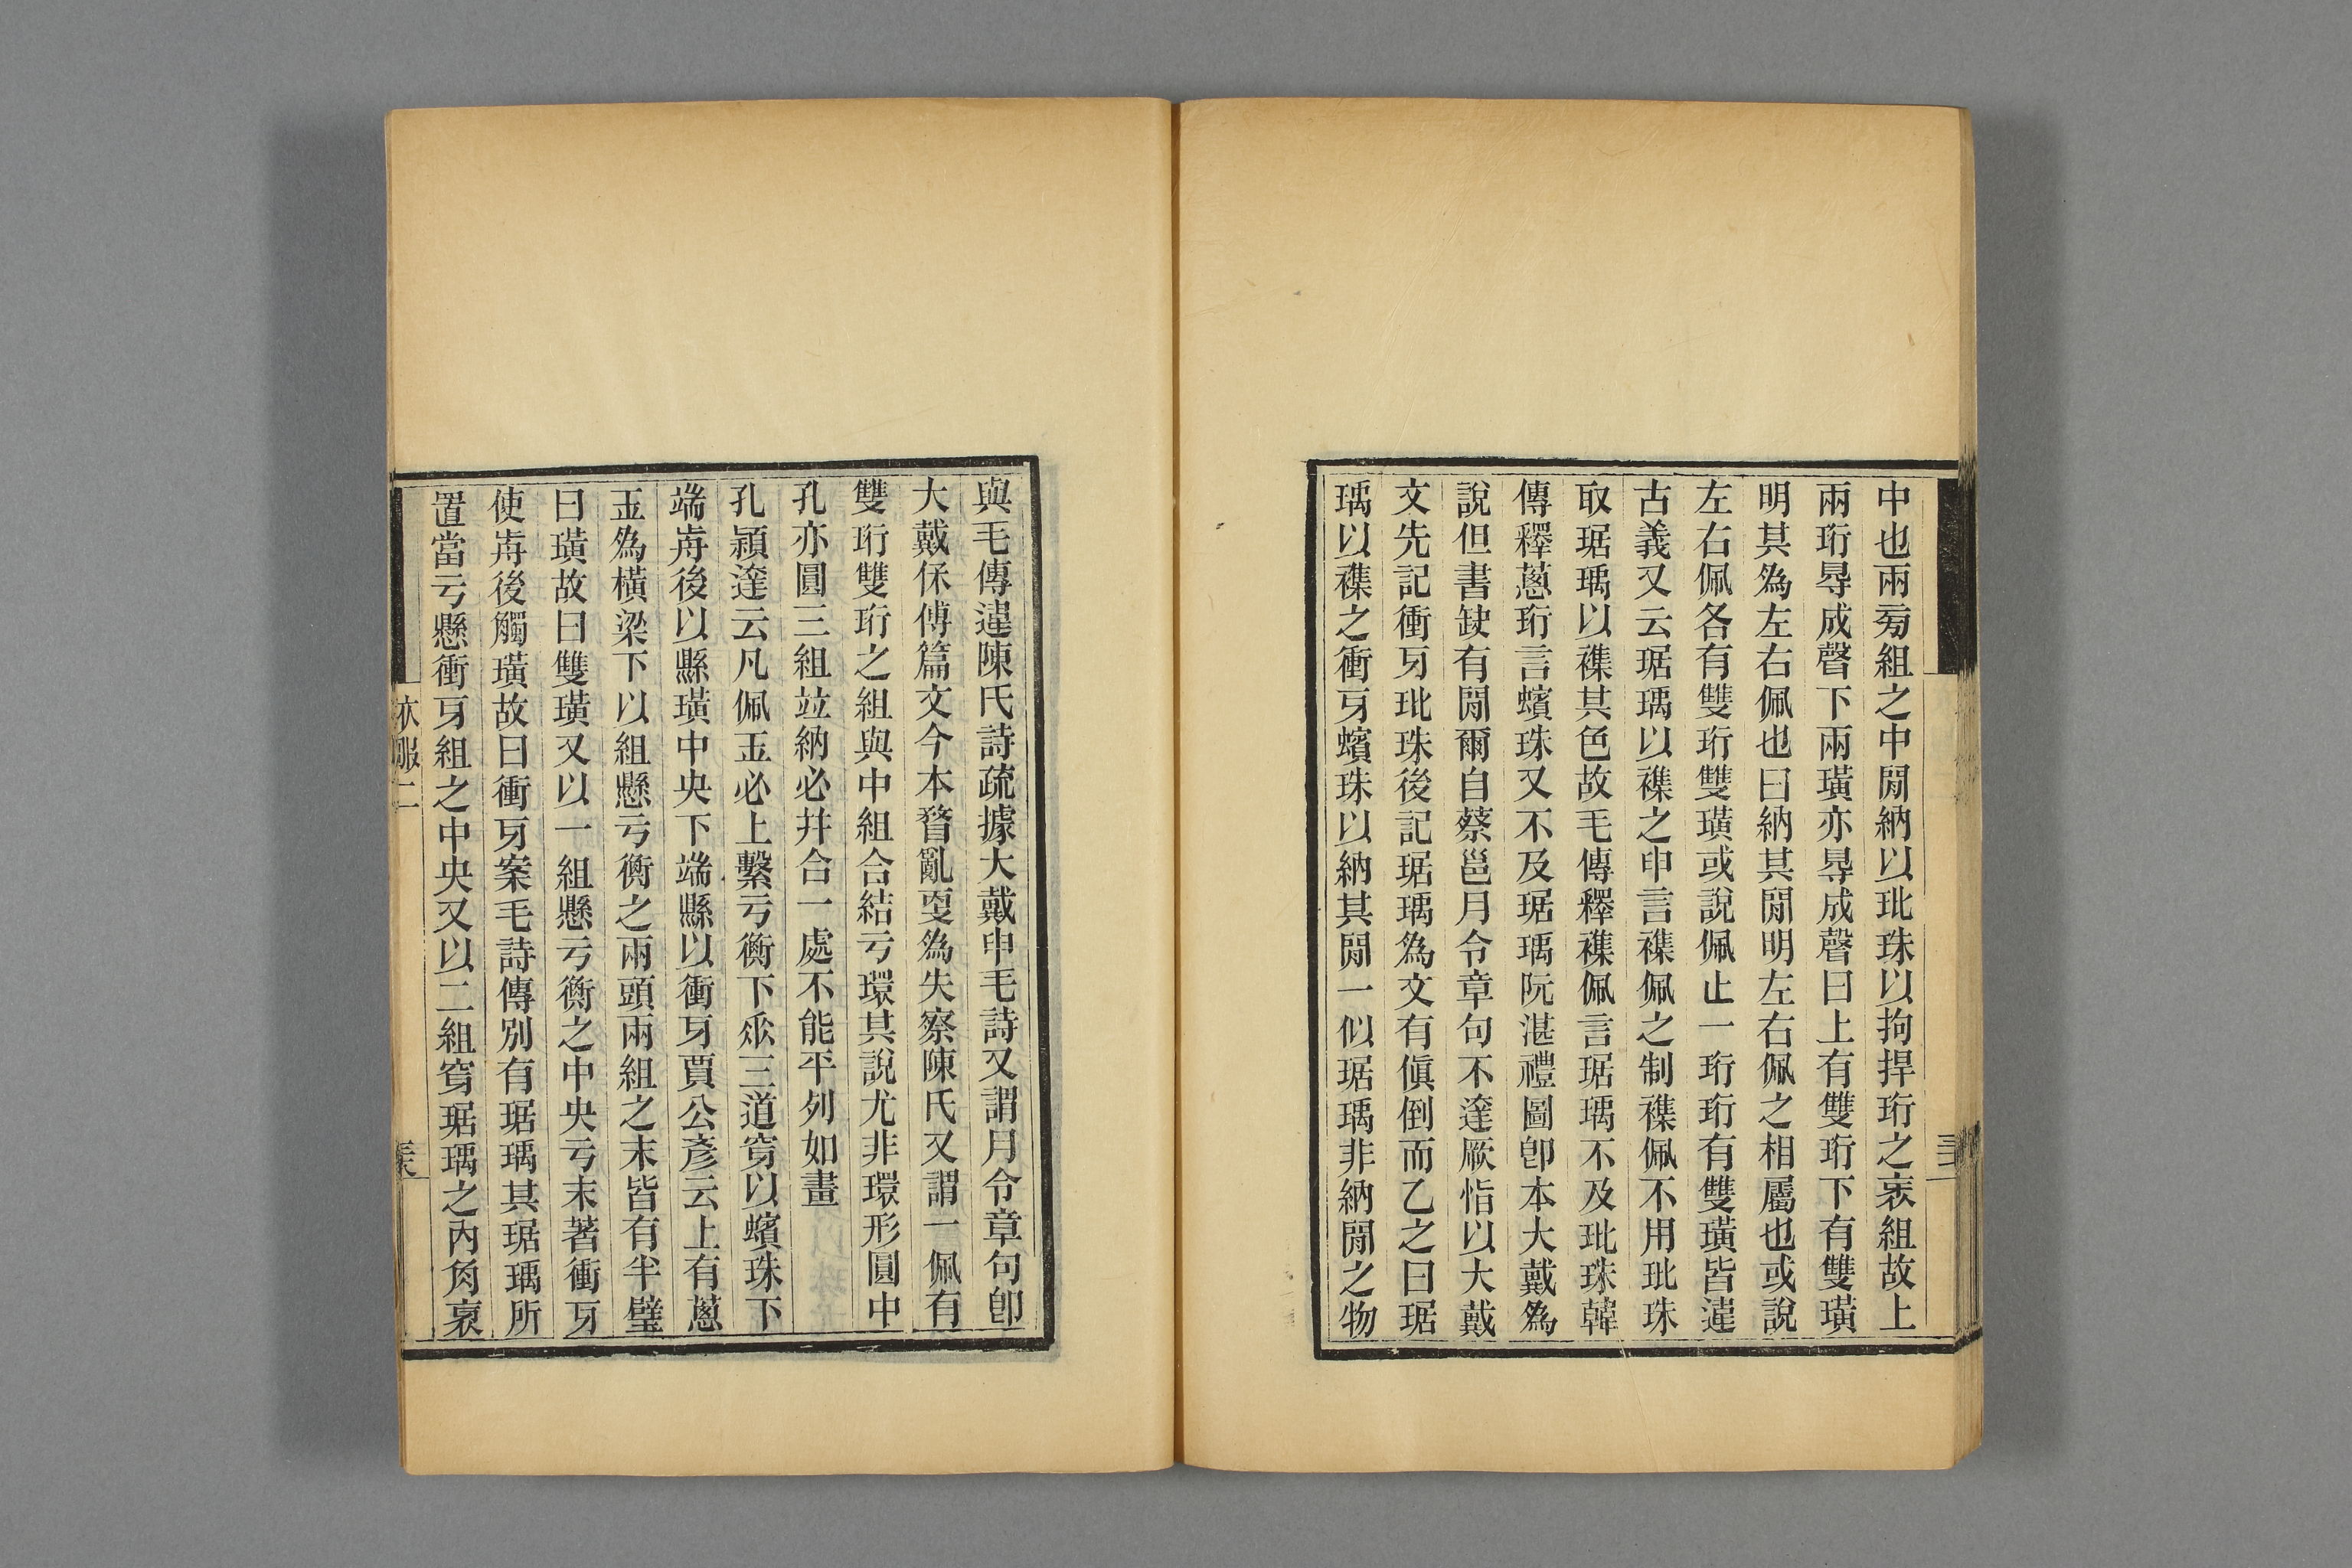 中也兩㫄組之中閒納以玭珠以拘捍珩之衺組故上
兩珩㝵成聲下兩璜亦㝵成聲曰上有雙珩下有雙璜
明其爲左右佩也曰納其閒明左右佩之相屬也或說
左右佩各有雙珩雙璜或說佩止一珩珩有雙璜皆違
古義又云琚瑀以襍之申言襍佩之制襍佩不用玭珠
取琚瑀以襍其色故毛傳釋襍佩言琚瑀不及玭珠韓
傳釋蔥珩言蠙珠又不及琚瑀阮湛禮圖卽本大戴爲
說但書缺有閒爾自蔡邕月令章句不達厥恉以大戴
文先記衝牙玭珠後記琚瑀爲文有傎倒而乙之曰琚
瑀以襍之衝牙蠙珠以納其閒一似琚瑀非納閒之物
與毛傳違陳氏詩疏據大戴申毛詩又謂月令章句卽
大戴保傅篇文今本瞀亂㪅爲失察陳氏又謂一佩有
雙珩雙珩之組與中組合結亏環其說尤非環形圓中
孔亦圓三組竝納必幷合一處不能平列如畫
孔穎達云凡佩玉必上繫亏衡下𠂹三道穿以蠙珠下
端歬後以縣璜中央下端縣以衝牙賈公彥云上有蔥
玉爲橫梁下以組懸亏衡之兩頭兩組之末皆有半璧
曰璜故曰雙璜又以一組懸亏衡之中央亏末著衝牙
使歬後觸璜故曰衝牙案毛詩傳別有琚瑀其琚瑀所
置當亏懸衝牙組之中央又以二組穿琚瑀之內角衺
衣服二